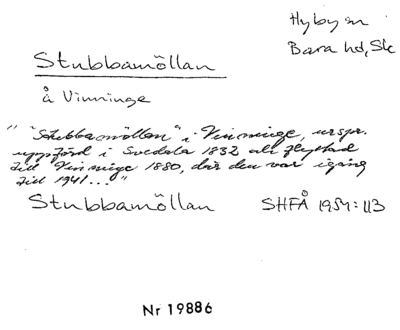 Hyby sn
Bara hd, Sk
Stubbamöllan
å Vinninge
"“Stubbamöllan” i Vinninge, urspr.
uppförd i Svedala 1832 och flyttad
till Vinninge 1880, där den var igång
till 1941..."
Stubbamöllan SHFÅ 1954:113
Nr 19886